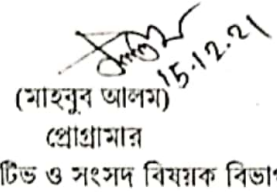 15.12.21
(মাহবুব আলম)
প্রোগ্রামার
টিভ ও সংসদ বিষয়ক বিভাগ